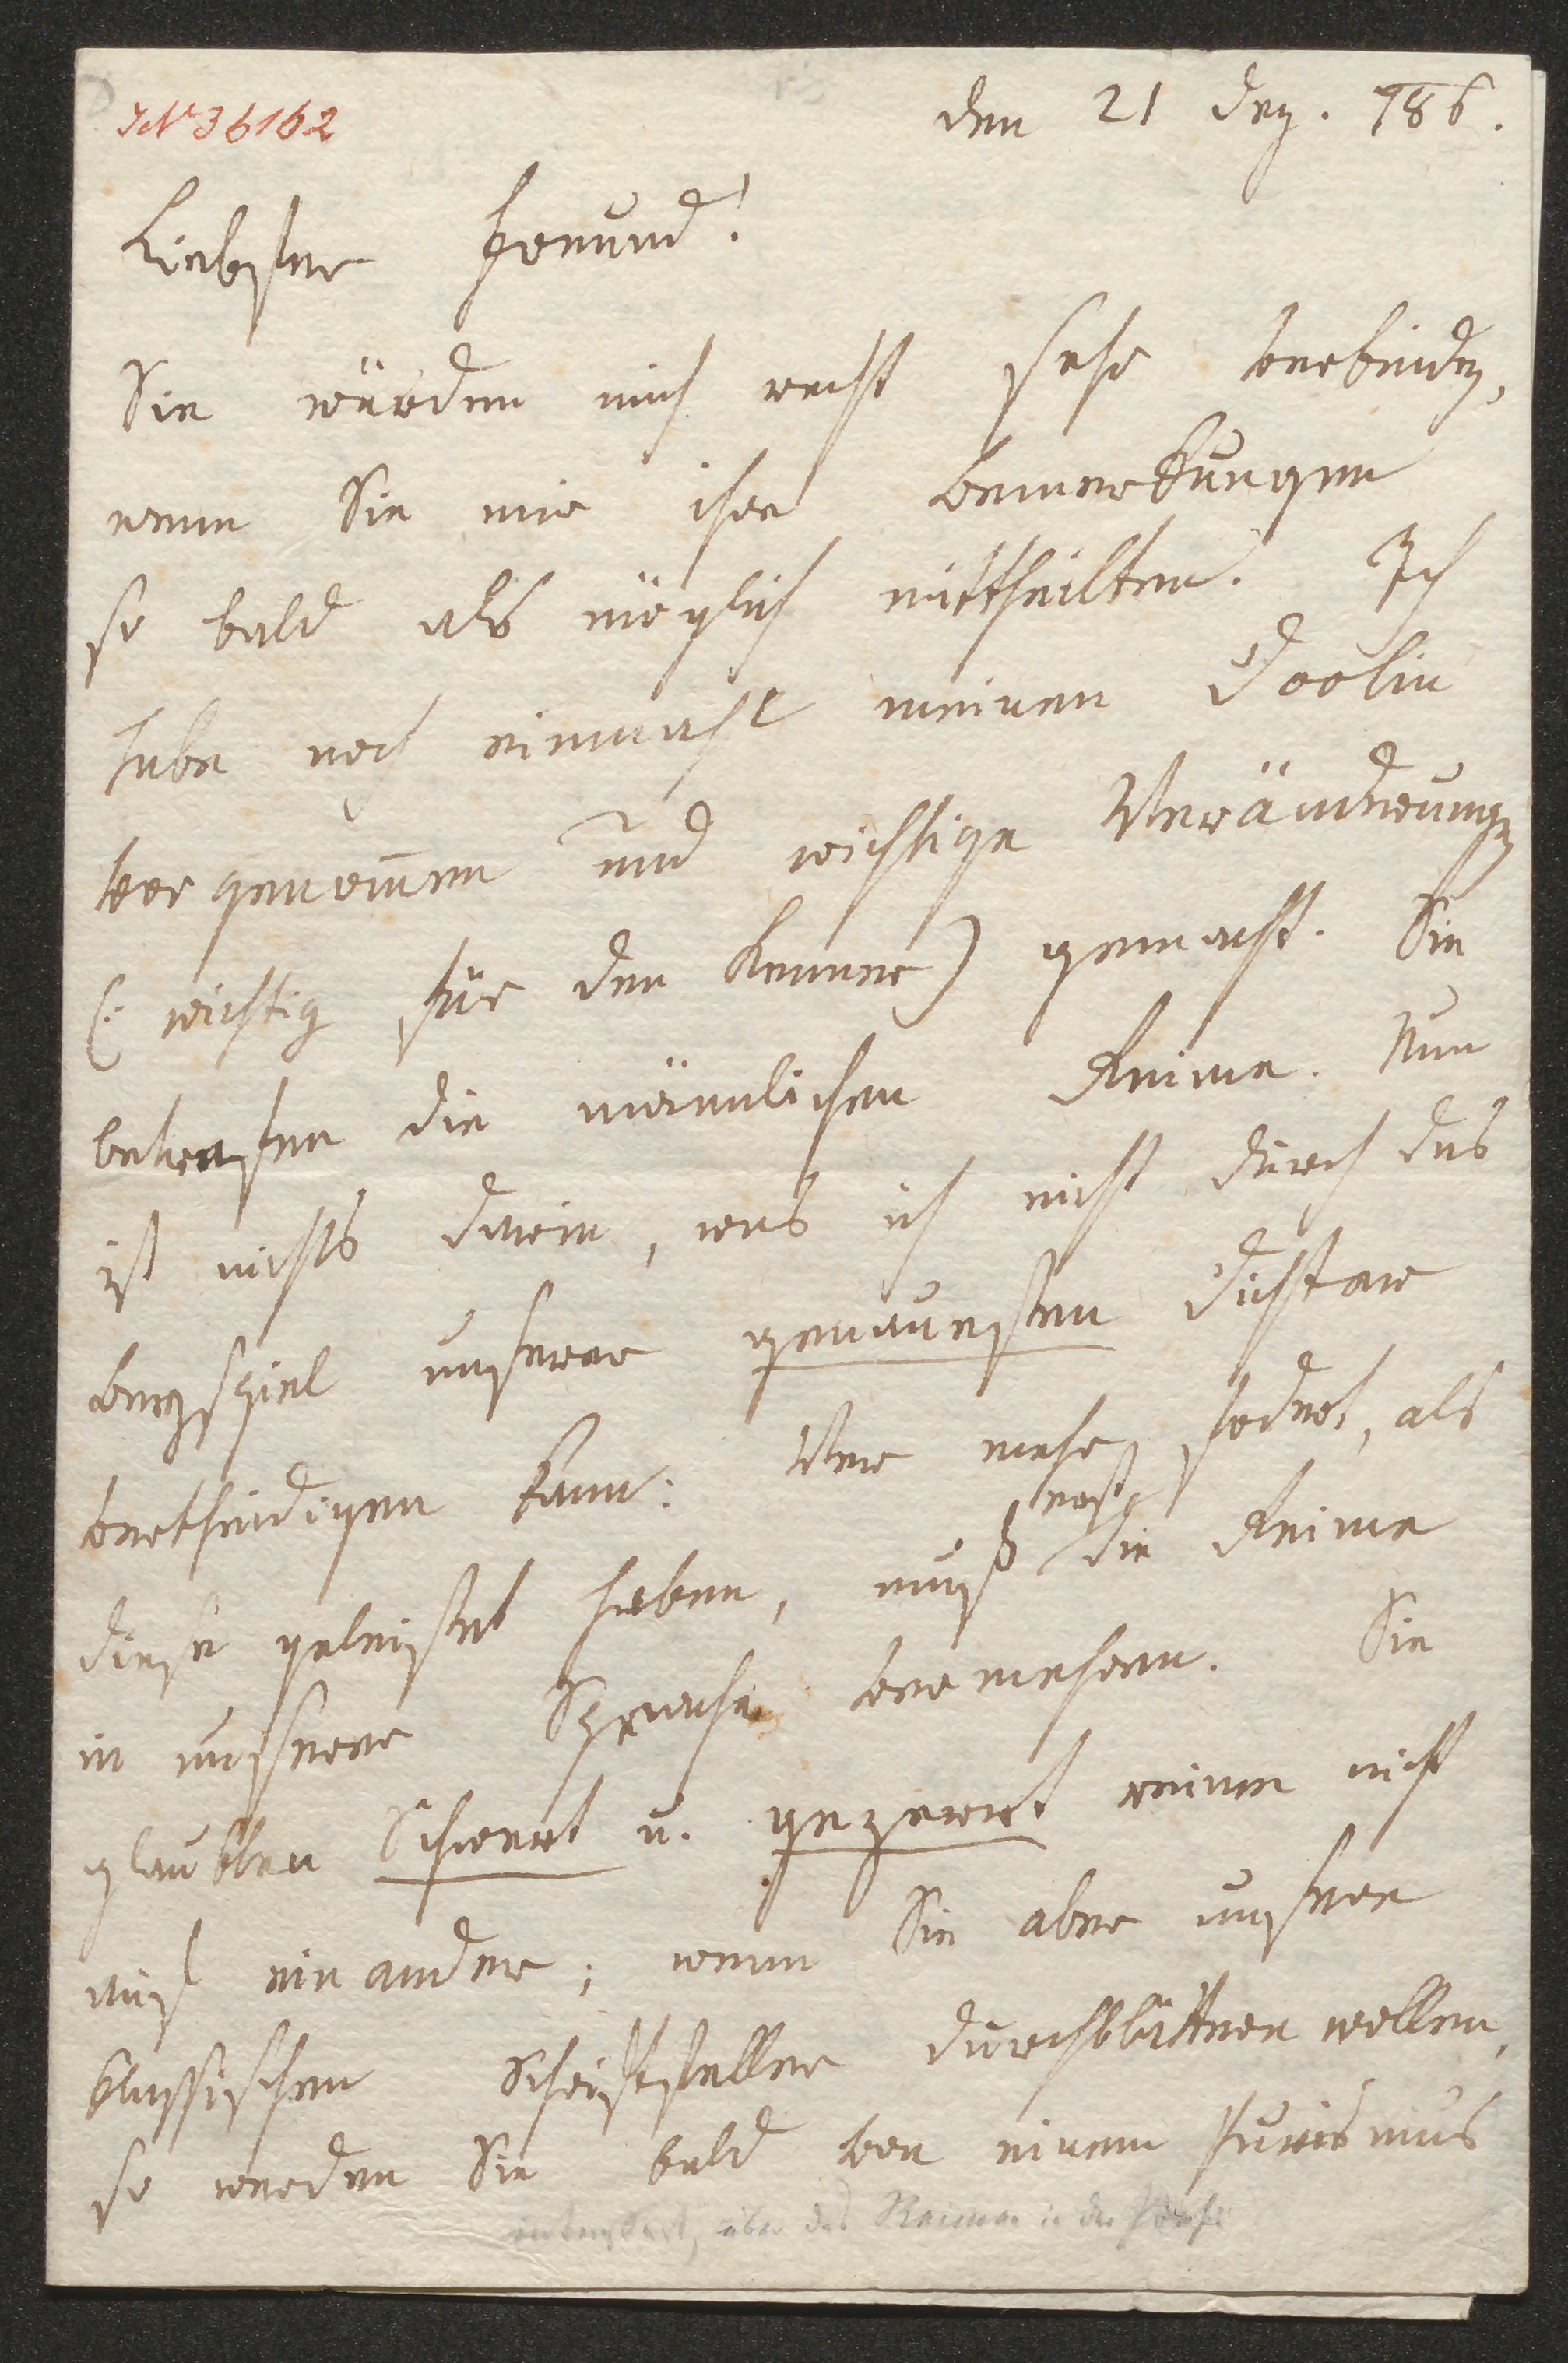 JN 36162
den 21 Dez. 786.
Liebster Freund!
Sie würden mich recht sehr verbinden,
wenn Sie mir ihre Bemerkungen
so bald als möglich mittheilten. Ich
habe noch einmahl meinen Doolin
vorgenom̄en und wichtige Veränderungen
(: wichtig für den Kenner) gemacht. Sie
betrafen die männlichen Reime. Nun
ist nichts darin, was ich nicht durch das
Beyspiel unserer genauesten Dichter
vertheidigen kann: Wer mehr fodert, als
diese geleistet haben, muß erst die Reime
in unserer Sprache vermehren. Sie
glaubten Schwert u. gezerrt reimen nicht
auf einander; wenn Sie aber unsere
klassischen Schriftsteller durchblättern wollen,
so werden Sie bald von einem Purismus
über das Reimen in der Poesie